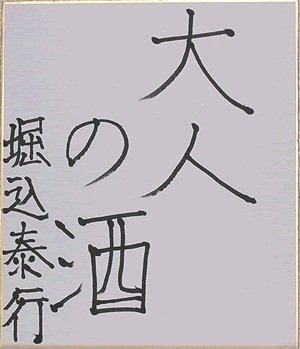 大人
の酒
堀込泰行